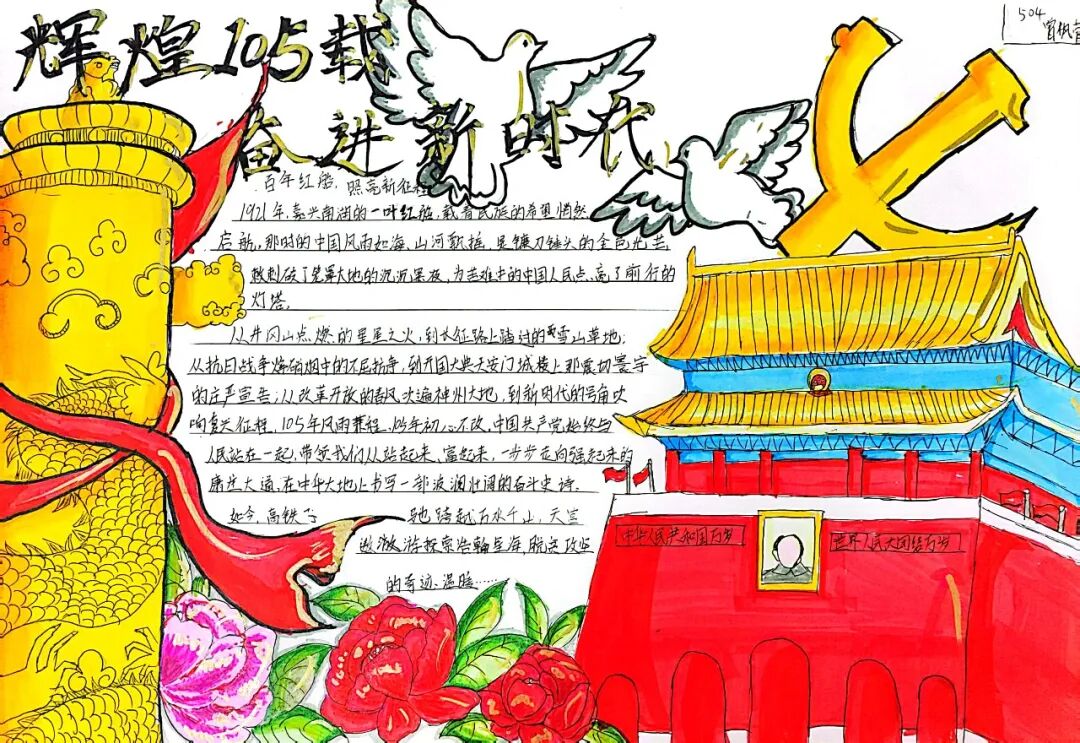 辉煌105载
奋进新时代
504
百年红船,照亮新征程
1921年,嘉兴南湖的一叶红船,载着民族的希望悄然
启航,那时的中国风雨如海,山河飘摇,是镰刀锤头的金色光芒
刺破了笼罩大地的沉沉黑夜,为苦难中的中国人民点亮了前行的
灯塔。
从井冈山点燃的星星之火,到长征路上踏过的雪山草地;
从抗日战争烽硝烟中的不屈抗争,到开国大典天安门城楼上那震切寰宇
的庄严宣告;从改革开放的春风吹遍神州大地,到新时代的号角吹
响复兴征程,105年风雨兼程,105年初心不改,中国共产党始终与
人民站在一起,带领我们从站起来、富起来,一步步走向强起来的
康庄大道,在中华大地上书写一部波澜壮阔的奋斗史诗。
如今,高铁飞驰跨越万水千山,天宫
遨游探索浩瀚星海,脱贫攻坚
的奇迹,温暖……
中华人民共和国万岁
世界人民大团结万岁